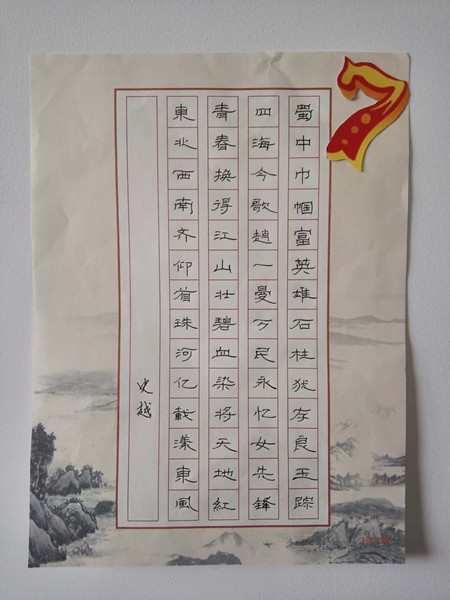 蜀中巾帼富英雄石柱犹存良玉踪
四海今歌趙一曼万民永忆女先鋒
青春换得江山壮碧血染将天地紅
東北西南齐仰首珠河亿載漾東風
史越
7